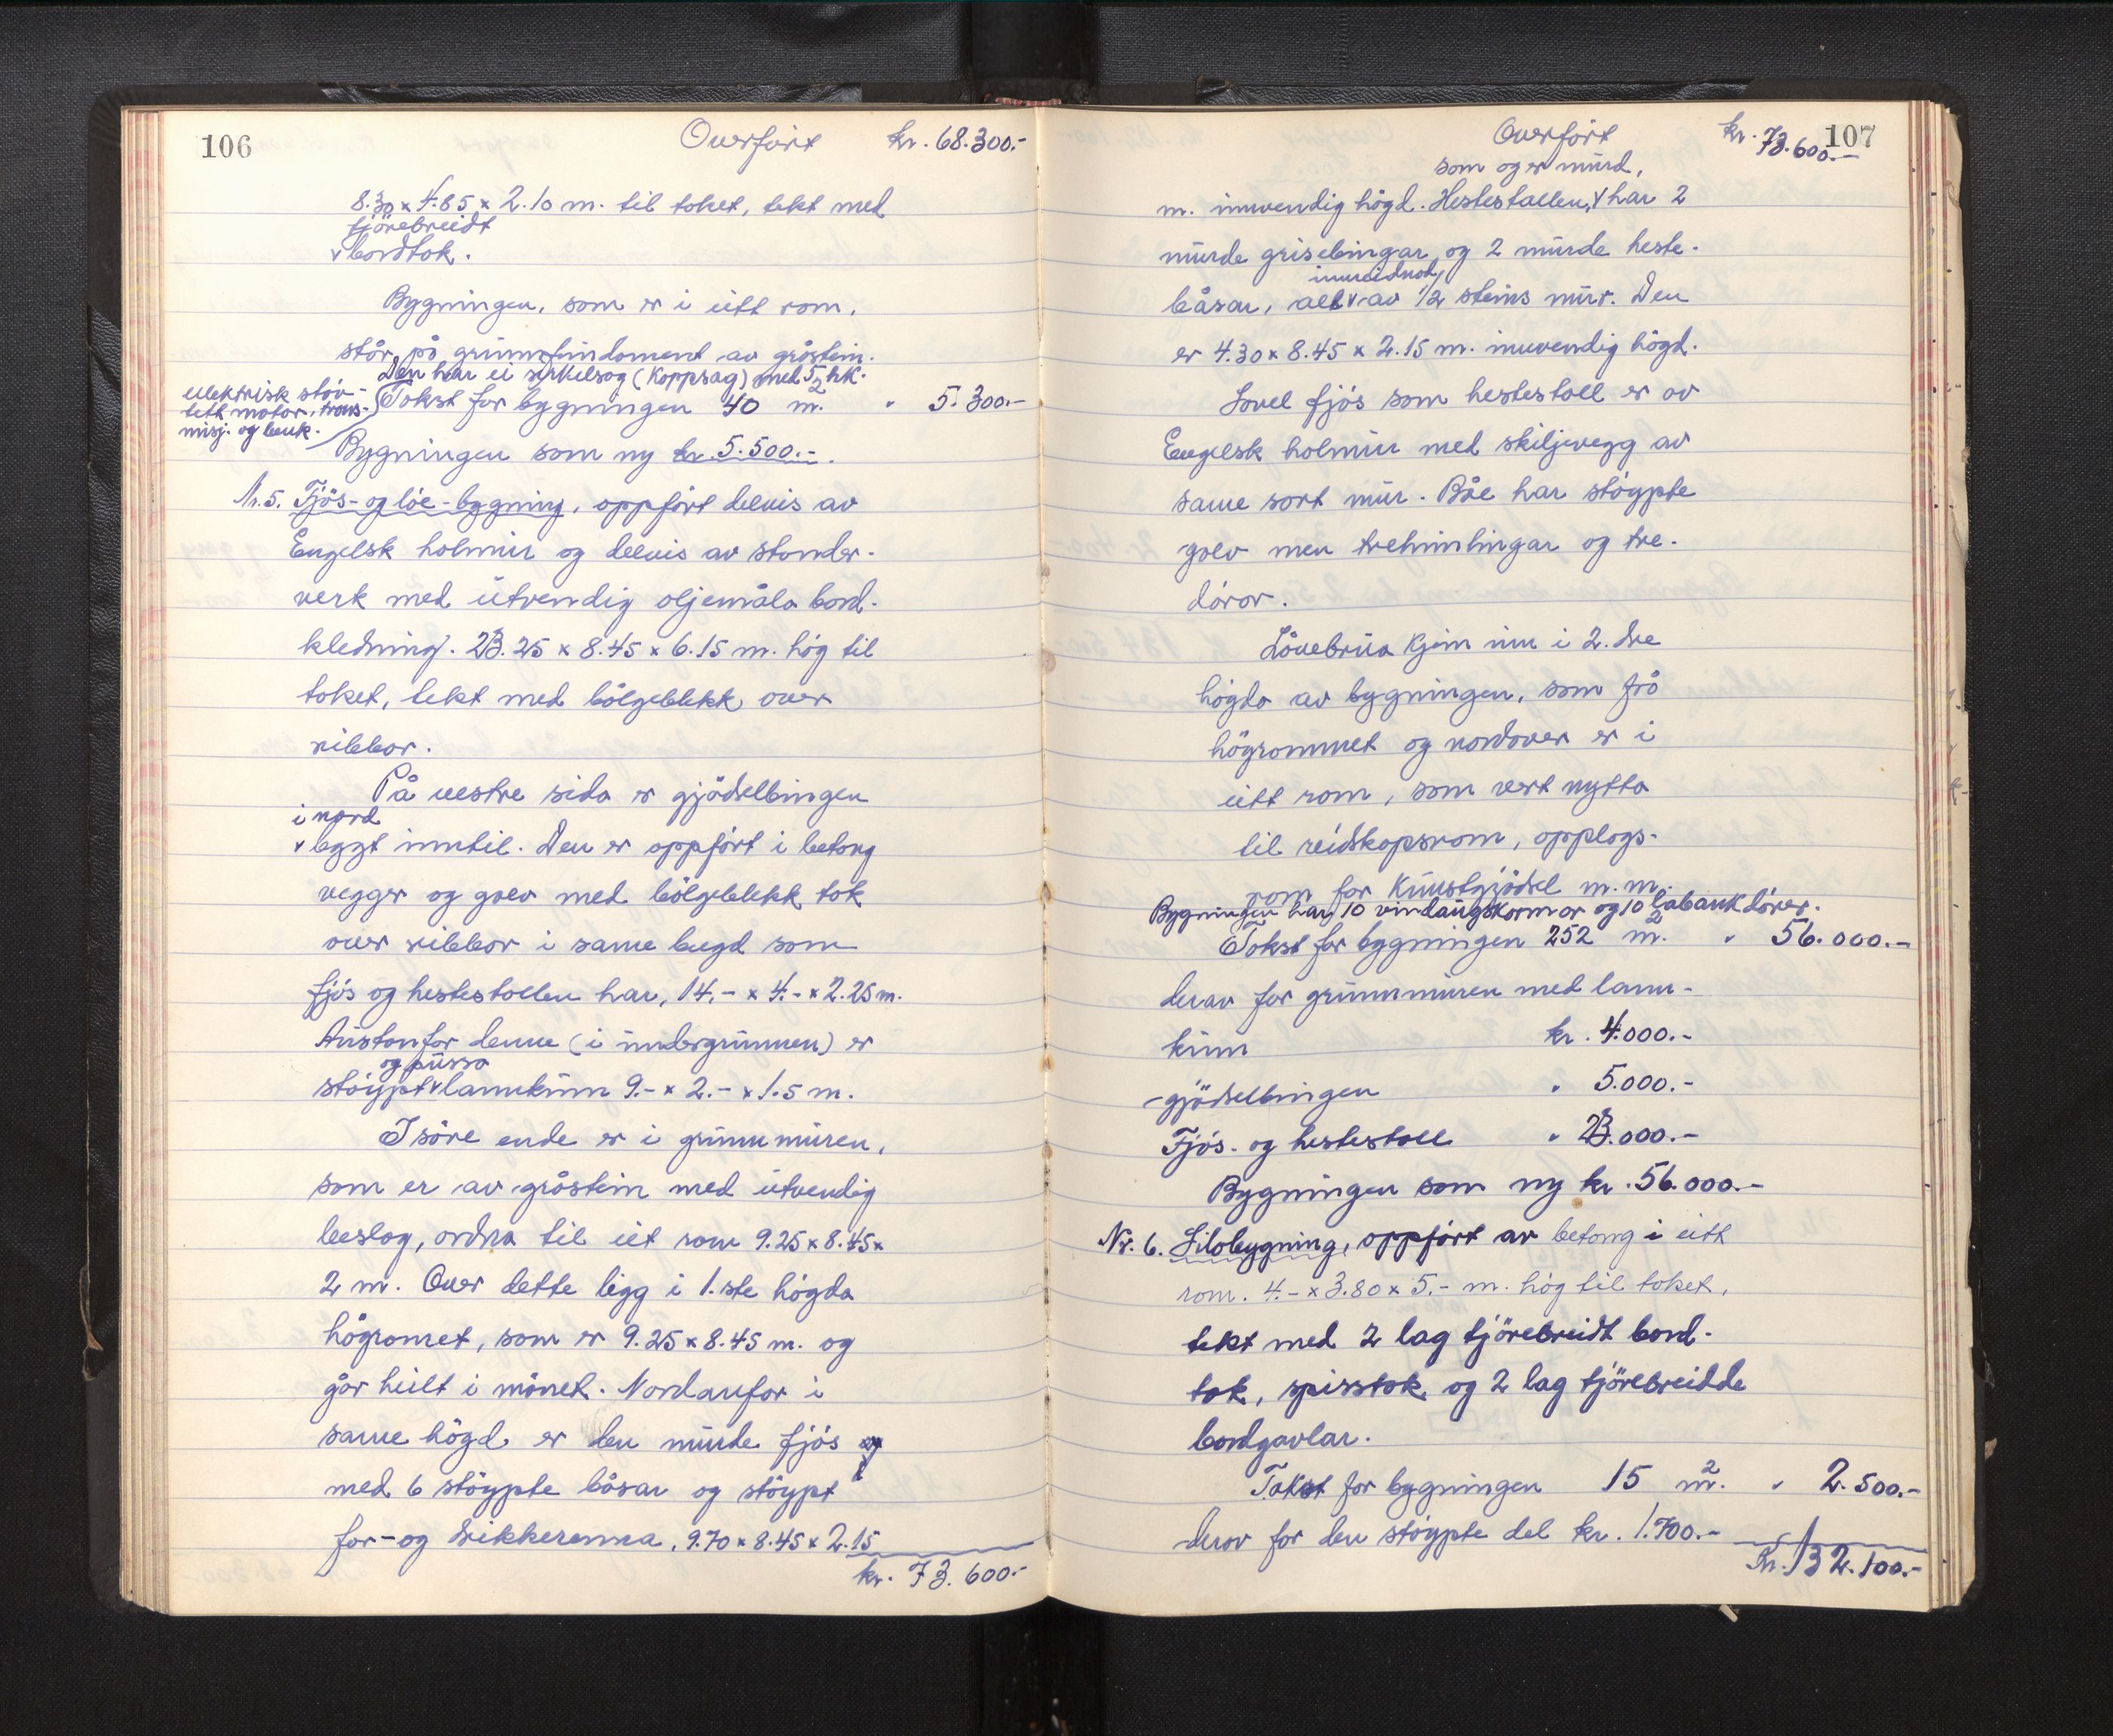 106
Overført kr. 68.300.-
8.30 x 4.85 x 2.10 m. til taket, tekt med
tjörebreidt
v bordtak.
Bygningen, som er i eitt rom,
står på grunnfundament av gråstein.
Den har ei sirkelsag (Kappsag) med 5 hk.
elektrisk støv-
tett motor, trans-
misj. og benk.
Takst for bygningen 40 m². " 5.300.-
Bygningen som ny kr. 5.500.-.
Nr. 5. Fjøs- og löe-bygning, oppført delvis av
Engelsk holmur og delvis av stender-
verk med utvendig oljemåla bord-
kledning. 23.25 x 8.45 x 6.15 m. høg til
taket, tekt med bölgeblekk over
ribber.
På vestre sida er gjödselbingen
i nord
v bygt inntil. Den er oppført i betong
vegger og golv med bölgeblekk tak
over ribber i same lengd som
fjös og hestestallen har, 14.- x 4.- x 2.25 m.
Austanfor denne (i undergrunnen) er
og pussa
støypt v lannkum 9.- x 2.- x 1.5 m.
I söre ende er i grunnmuren,
som er av gråstein med utvendig
beslag, ordna til eit rom 9.25 x 8.45 x
2 m. Over dette ligg i 1.ste högda
högromet, som er 9.25 x 8.45 m. og
går heilt i mönet. Nordanfor i
same högd er den murde fjös og
med 6 støypte båsar og støypt
for- og drikkerenna, 9.70 x 8.45 x 2.15
kr. 73.600.-
107
Overført kr. 73.600.-
som og er murd,
m. innvendig högd. Hestestallen, v har 2
murde grisebingar og 2 murde heste-
innreidnad
båsar, alt v av 1/2 steins mur. Den
er 4.30 x 8.45 x 2.15 m. innvendig högd.
Sovel fjös som hestestall er av
Engelsk holmur med skiljevegg av
same sort mur. Båe har støypte
golv men trehimlingar og tre-
dörar.
Låvebrua kjem inn i 2. dre
högda av bygningen, som frå
högrommet og nordover er i
eitt rom, som vert nytta
til reidskapsrom, opplags-
rom for Kunstgjödsel m.m.
Bygningen har 10 vindaugskarmar og 10 labank dörer.
Takst for bygningen 252 m². " 56.000.-
derav for grunnmuren med lann-
kum kr. 4.000.-
gjödselbingen " 5.000.-
Fjös- og hestestall " 23.000.-
Bygningen som ny kr. 56.000.-
Nr. 6. Silobygning, oppført av betong i eitt
rom. 4.- x 3.80 x 5.- m. høg til taket,
tekt med 2 lag tjörebreidt bord-
tak, spisstak og 2 lag tjörebreidde
bordgavlar.
Takst for bygningen 15 m². " 2.500.-
derav for den støypte del kr. 1.700.-
Kr. 132.100.-